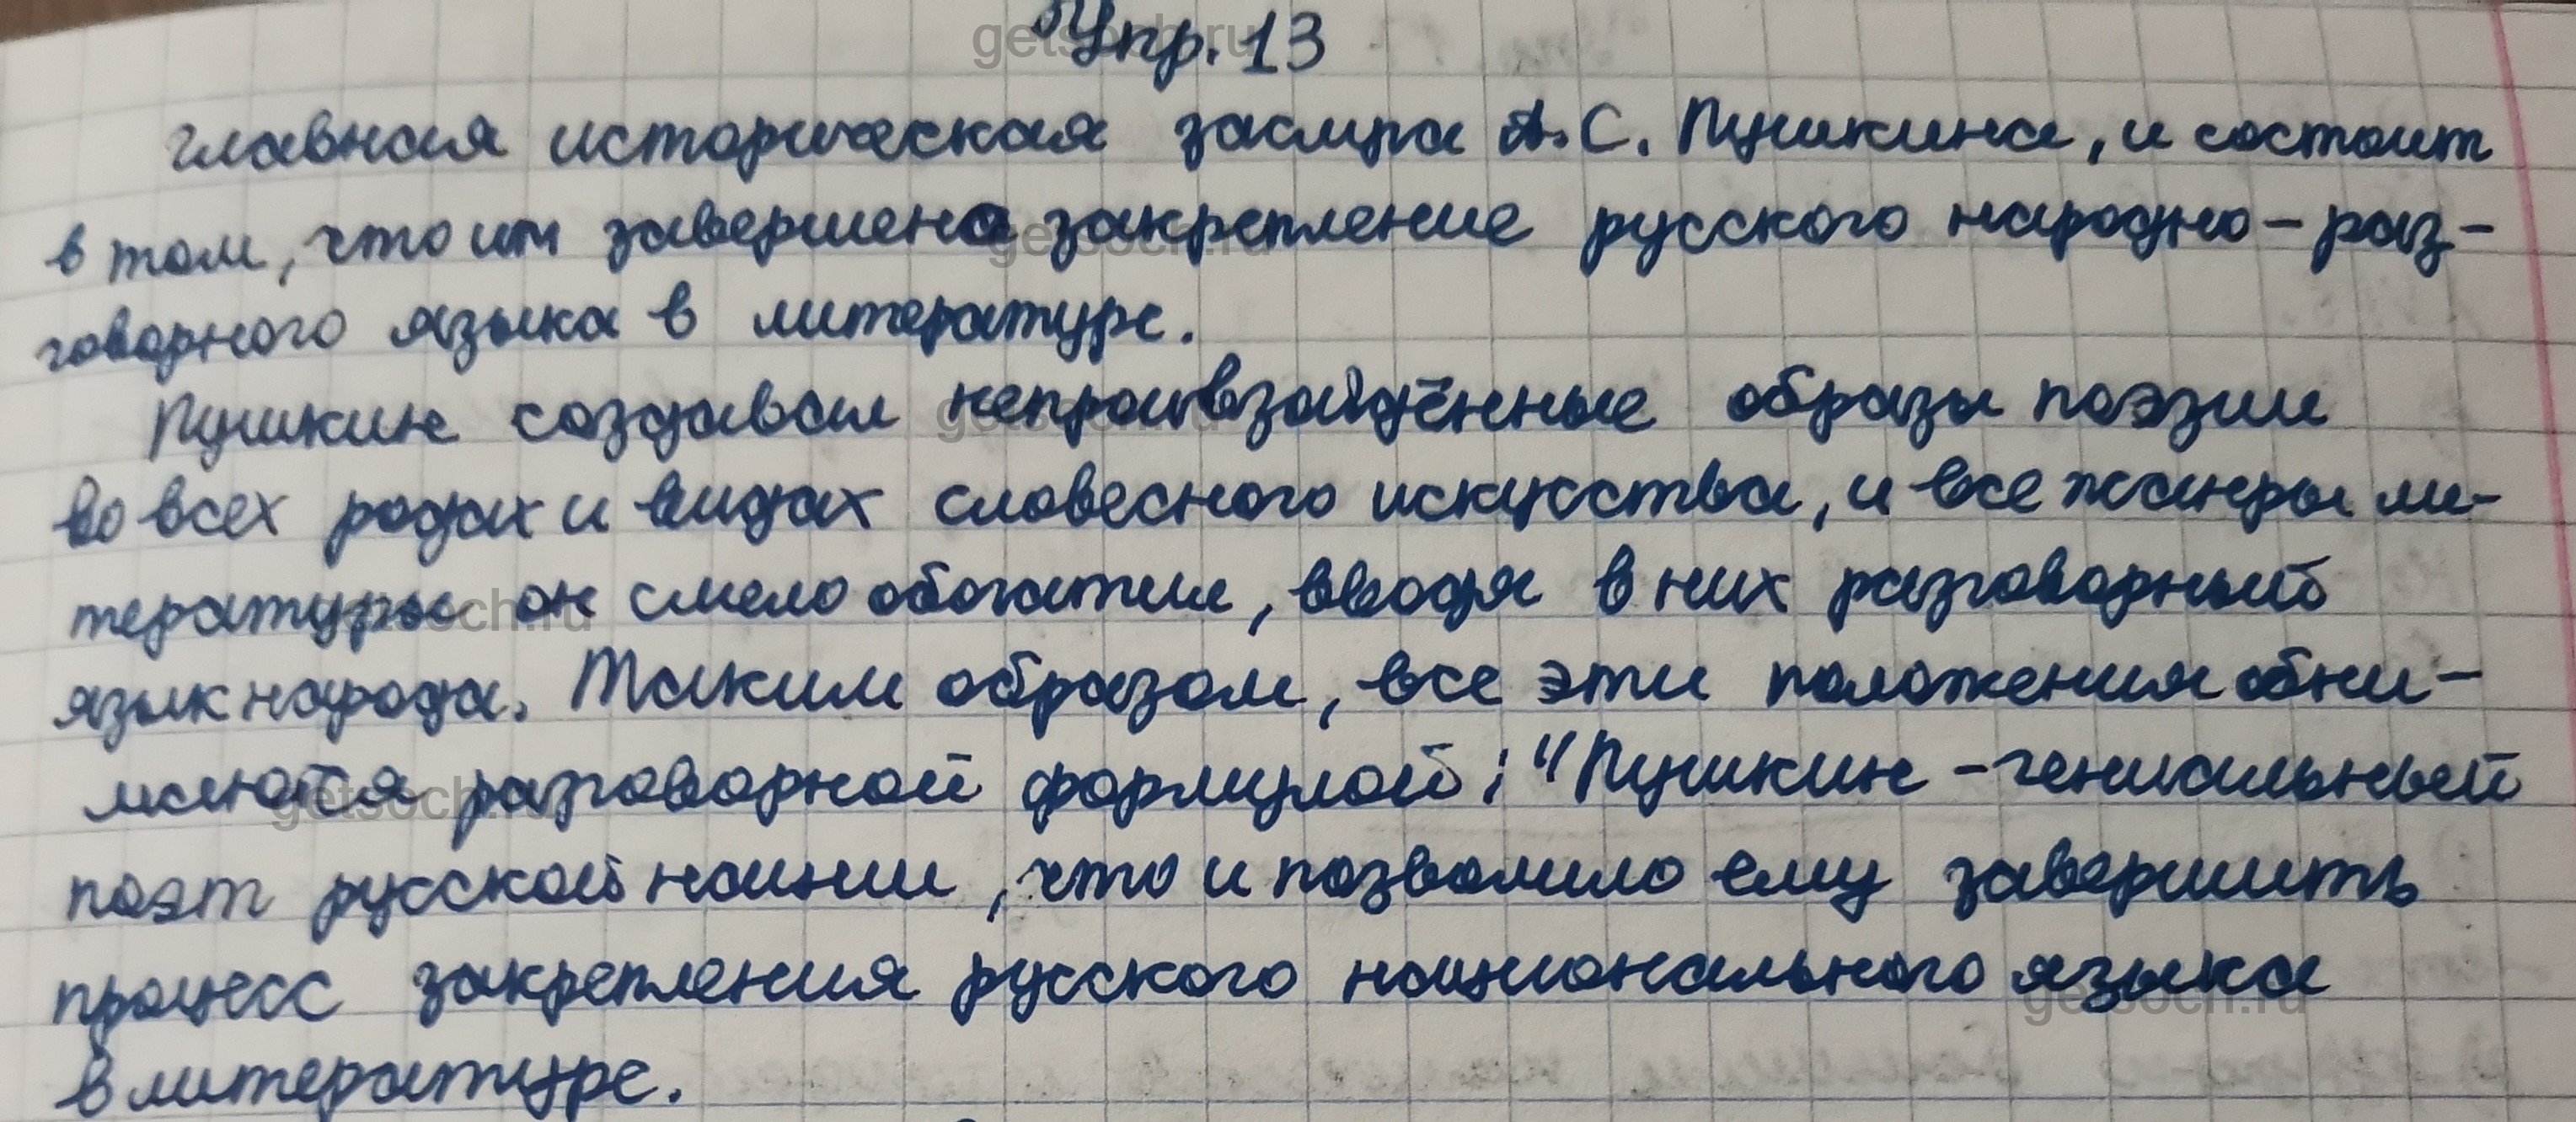 Упр. 13
главная историческая заслуга А. С. Пушкина, и состоит
в том, что им завершено закрепление русского народно-раз-
говорного языка в литературе.
Пушкин создавал непроивзайдённые образы поэзии
во всех родах и видах словесного искусства, и все жанры ли-
тературы он смело обогатил, вводя в них разговорный
язык народа. Таким образом, все эти положения обни-
маются разговорной формулой: "Пушкин - гениальный
поэт русской нации, что и позволило ему завершить
процесс закрепления русского национального языка
в литературе.
getsoch.ru